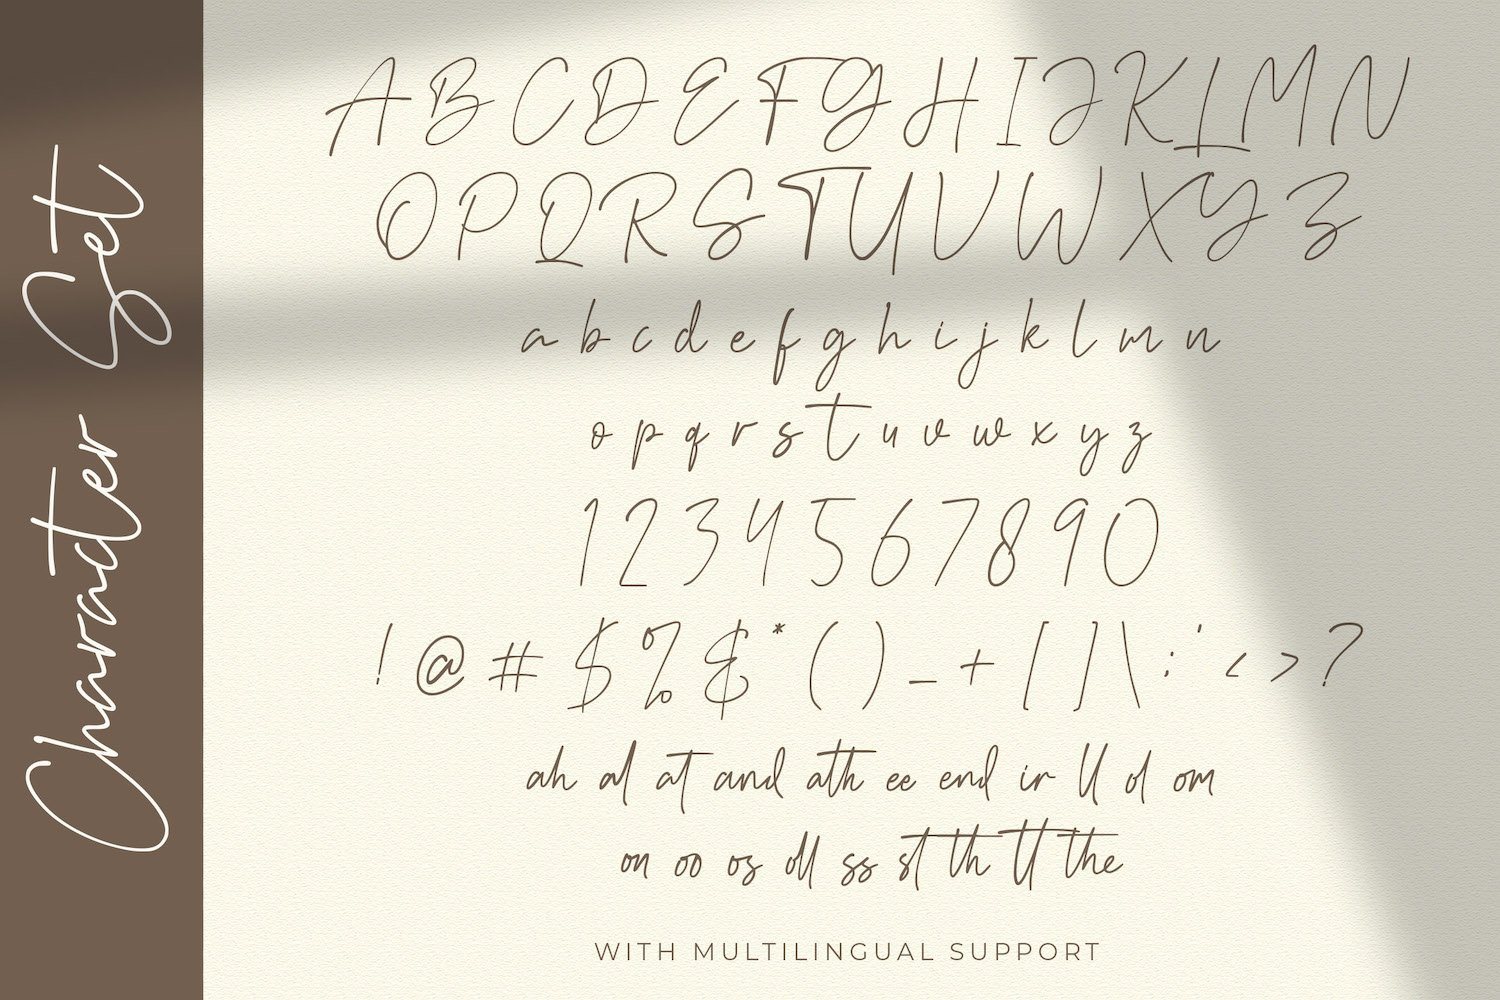 Charater Set
A B C D E F G H I J K L M N
O P Q R S T U V W X Y Z
a b c d e f g h i j k l m n
o p q r s t u v w x y z
1 2 3 4 5 6 7 8 9 0
! @ # $ % & * ( ) _ + [ ] \ : ' < > ?
ah al at and ath ee end ir ll ol om
on oo os oll ss st th tt the
WITH MULTILINGUAL SUPPORT